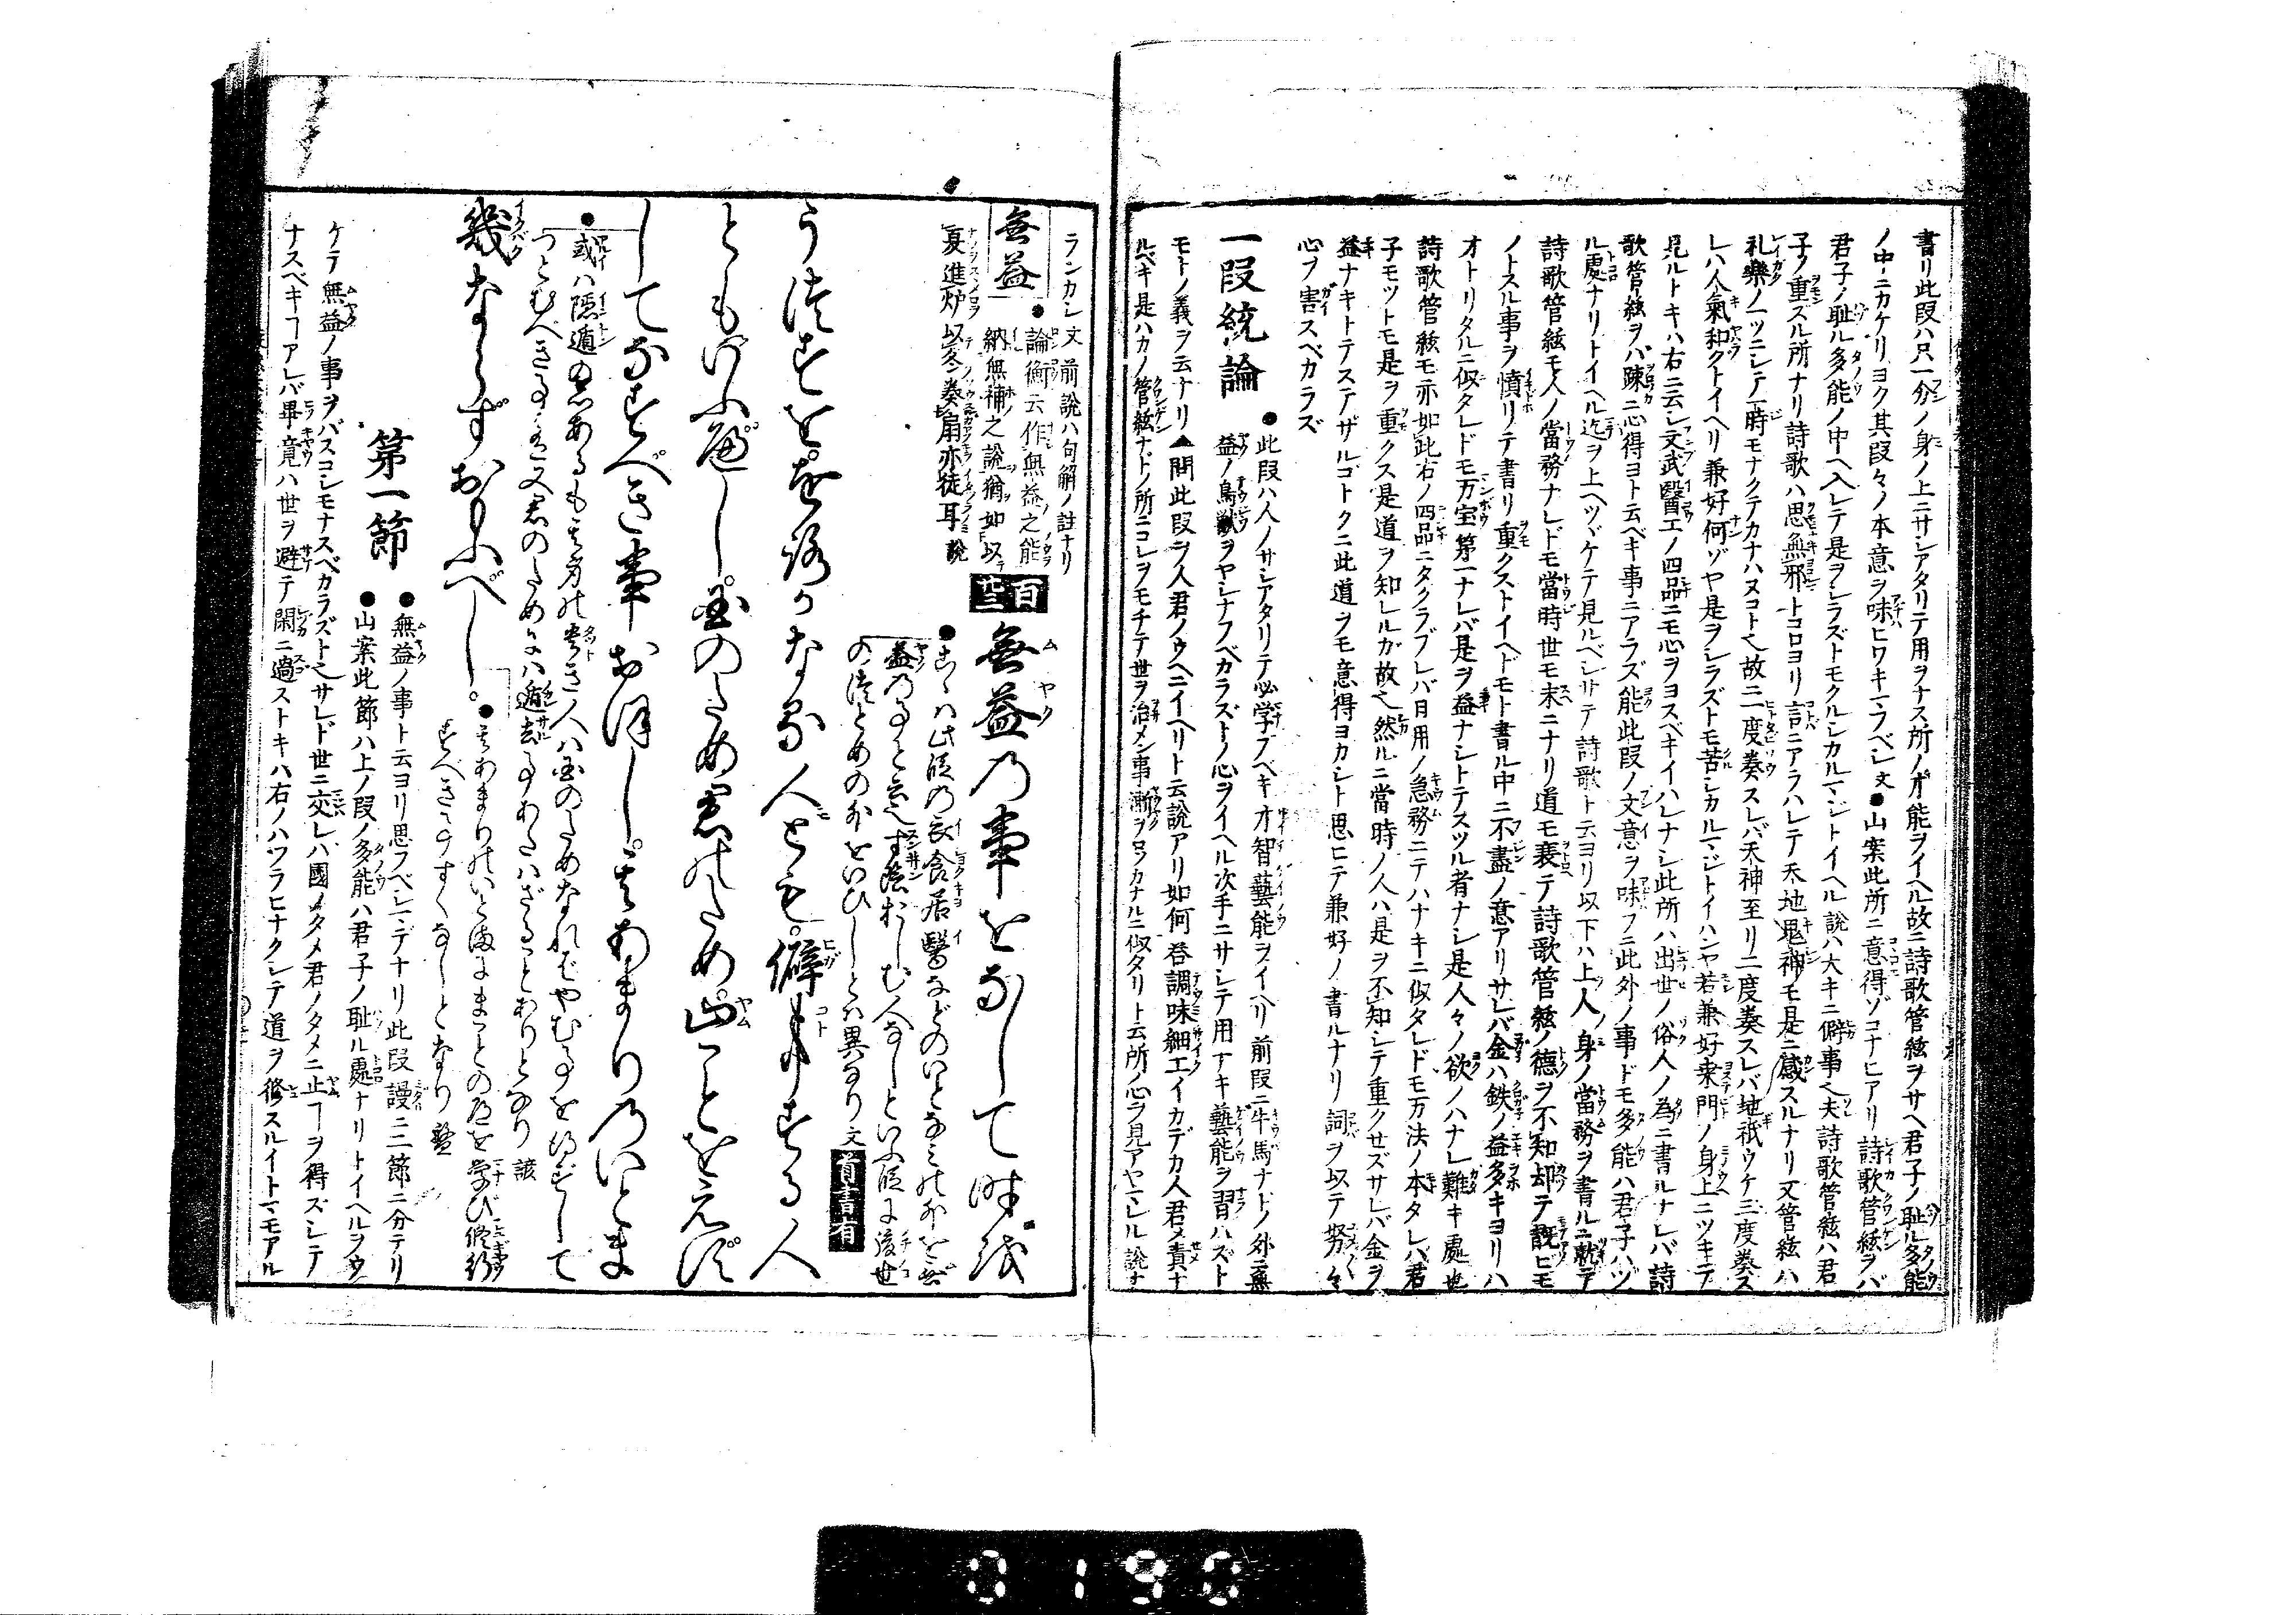 書リ此段ハ只一分ノ身ノ上ニサシアタリテ用ヲナス所ノ才能ヲイヘル故ニ詩歌管絃ヲサヘ君子ノ耻ル多能
ノ中ニカケリヨク其段々ノ本意ヲ味ヒワキマフベシ文●山案此所ニ意得ゾコナヒアリ詩歌管絃ヲバ
君子ノ耻ル多能ノ中ヘ入レテ是ヲシラズトモクルシカルマジトイヘル説ハ大キニ僻事也夫詩歌管絃ハ君
子ノ重ズル所ナリ詩歌ハ思無邪トコロヨリ言ニアラハレテ天地鬼神モ是ニ感スルナリ又管絃ハ
礼樂ノ一ツニシテ一時モナクテカナハヌコト也故ニ一度奏スレバ天神至リ二度奏スレバ地祇ウケ三度奏ス
レハ人氣和クトイヘリ兼好何ゾヤ是ヲシラズトモ苦シカルマジトイハンヤ若兼好桒門ノ身上ニツキテ
見ルトキハ右ニ云シ文武醫工ノ四品ニモ心ヲヨスベキイハレナシ此所ハ出世ノ俗人ノ為ニ書ルナレバ詩
歌管絃ヲバ踈ニ心得ヨト云ベキ事ニアラズ能此段ノ文意ヲ味フニ此外ノ事ドモ多能ハ君子ハヅ
ル處ナリトイヘル迄ヲ上ヘツヾケテ見ルベシサテ詩歌ト云ヨリ以下ハ上人ノ身ノ當務ヲ書ルニ就テ
詩歌管絃モ人ノ當務ナレドモ當時世モ末ニナリ道モ衰テ詩歌管絃ノ德ヲ不知却テ翫ビモ
ノトスル事ヲ憤リテ書リ重クストイヘドモト書ル中ニ不盡ノ意アリサレバ金ハ鉄ノ益多キヨリハ
オトリタルニ似タレドモ万宝第一ナレバ是ヲ益ナシトテスツル者ナシ是人々ノ欲ノハナレ難キ處也
詩歌管絃モ亦如此右ノ四品ニタクラブレバ日用ノ急務ニテハナキニ似タレドモ万法ノ本タレバ君
子モツトモ是ヲ重クス是道ヲ知レルガ故也然ルニ當時ノ人ハ是ヲ不知シテ重クセズサレバ金ヲ
益ナキトテステザルゴトクニ此道ヲモ意得ヨカシト思ヒテ兼好ノ書ルナリ詞ヲ以テ努々
心ヲ害スベカラズ
一段統論 ●此段ハ人ノサシアタリテ必学ブベキ才智藝能ヲイヘリ前段ニ牛馬ナドノ外ニ無
益ノ鳥獣ヲヤシナフベカラズトノ心ヲイヘル次手ニサシテ用ナキ藝能ヲ習ハズト
モトノ義ヲ云ナリ▲問此段ヲ人君ノウヘニイヘリト云説アリ如何答調味細工イカデカ人君ヌ責ナ
ルベキ是ハカノ管絃ナドノ所ニコレヲモチテ世ヲ治メン事漸ヲロカナルニ似タリト云所ノ心ヲ見アヤマレル説ナ
ランカシ文前説ハ句解ノ註ナリ
無益 ●論衡云作無益之能
納無補之説猶如以
夏進炉以冬奏扇亦徒耳説
百廿三
無益の事をなして時を
●こゝは此段の衣食居醫などのいとなみの外をば
益の事と云也寸陰おしむ人なしといふ段は後世
の徒とめの外をいひしとは異なり文 首書有
うつすをおろかなる人ともひが事する人
ともいふべし国のため君のためにやむことをえずし
してなすべき事おほしそのあまりのいとま
●或ハ隠遁の志あるも其身の貴き人ハ国のためなればやむ事を得ずして
つとむべき事を又君のためにハ遁去事あたハざることありとなり諺
幾ならずおもふべし ●其あまりのいとまにまことの道を学び修行
すべきものすくなしとなり盤
第一節 ●無益ノ事ト云ヨリ思フベシマデナリ此段謾ニ二節ニ分テリ
●山案此節ハ上ノ段ノ多能ハ君子ノ耻ル處ナリトイヘルヲウ
ケテ無益ノ事ヲバスコシモナスベカラズト也サレド世ニ交レハ國ノタメ君ノタメニ止ヿヲ得ズシテ
ナスベキヿアレバ畢竟ハ世ヲ避テ閑ニ過ストキハ右ノハヅラヒナクシテ道ヲ修スルイトマモアル
0190